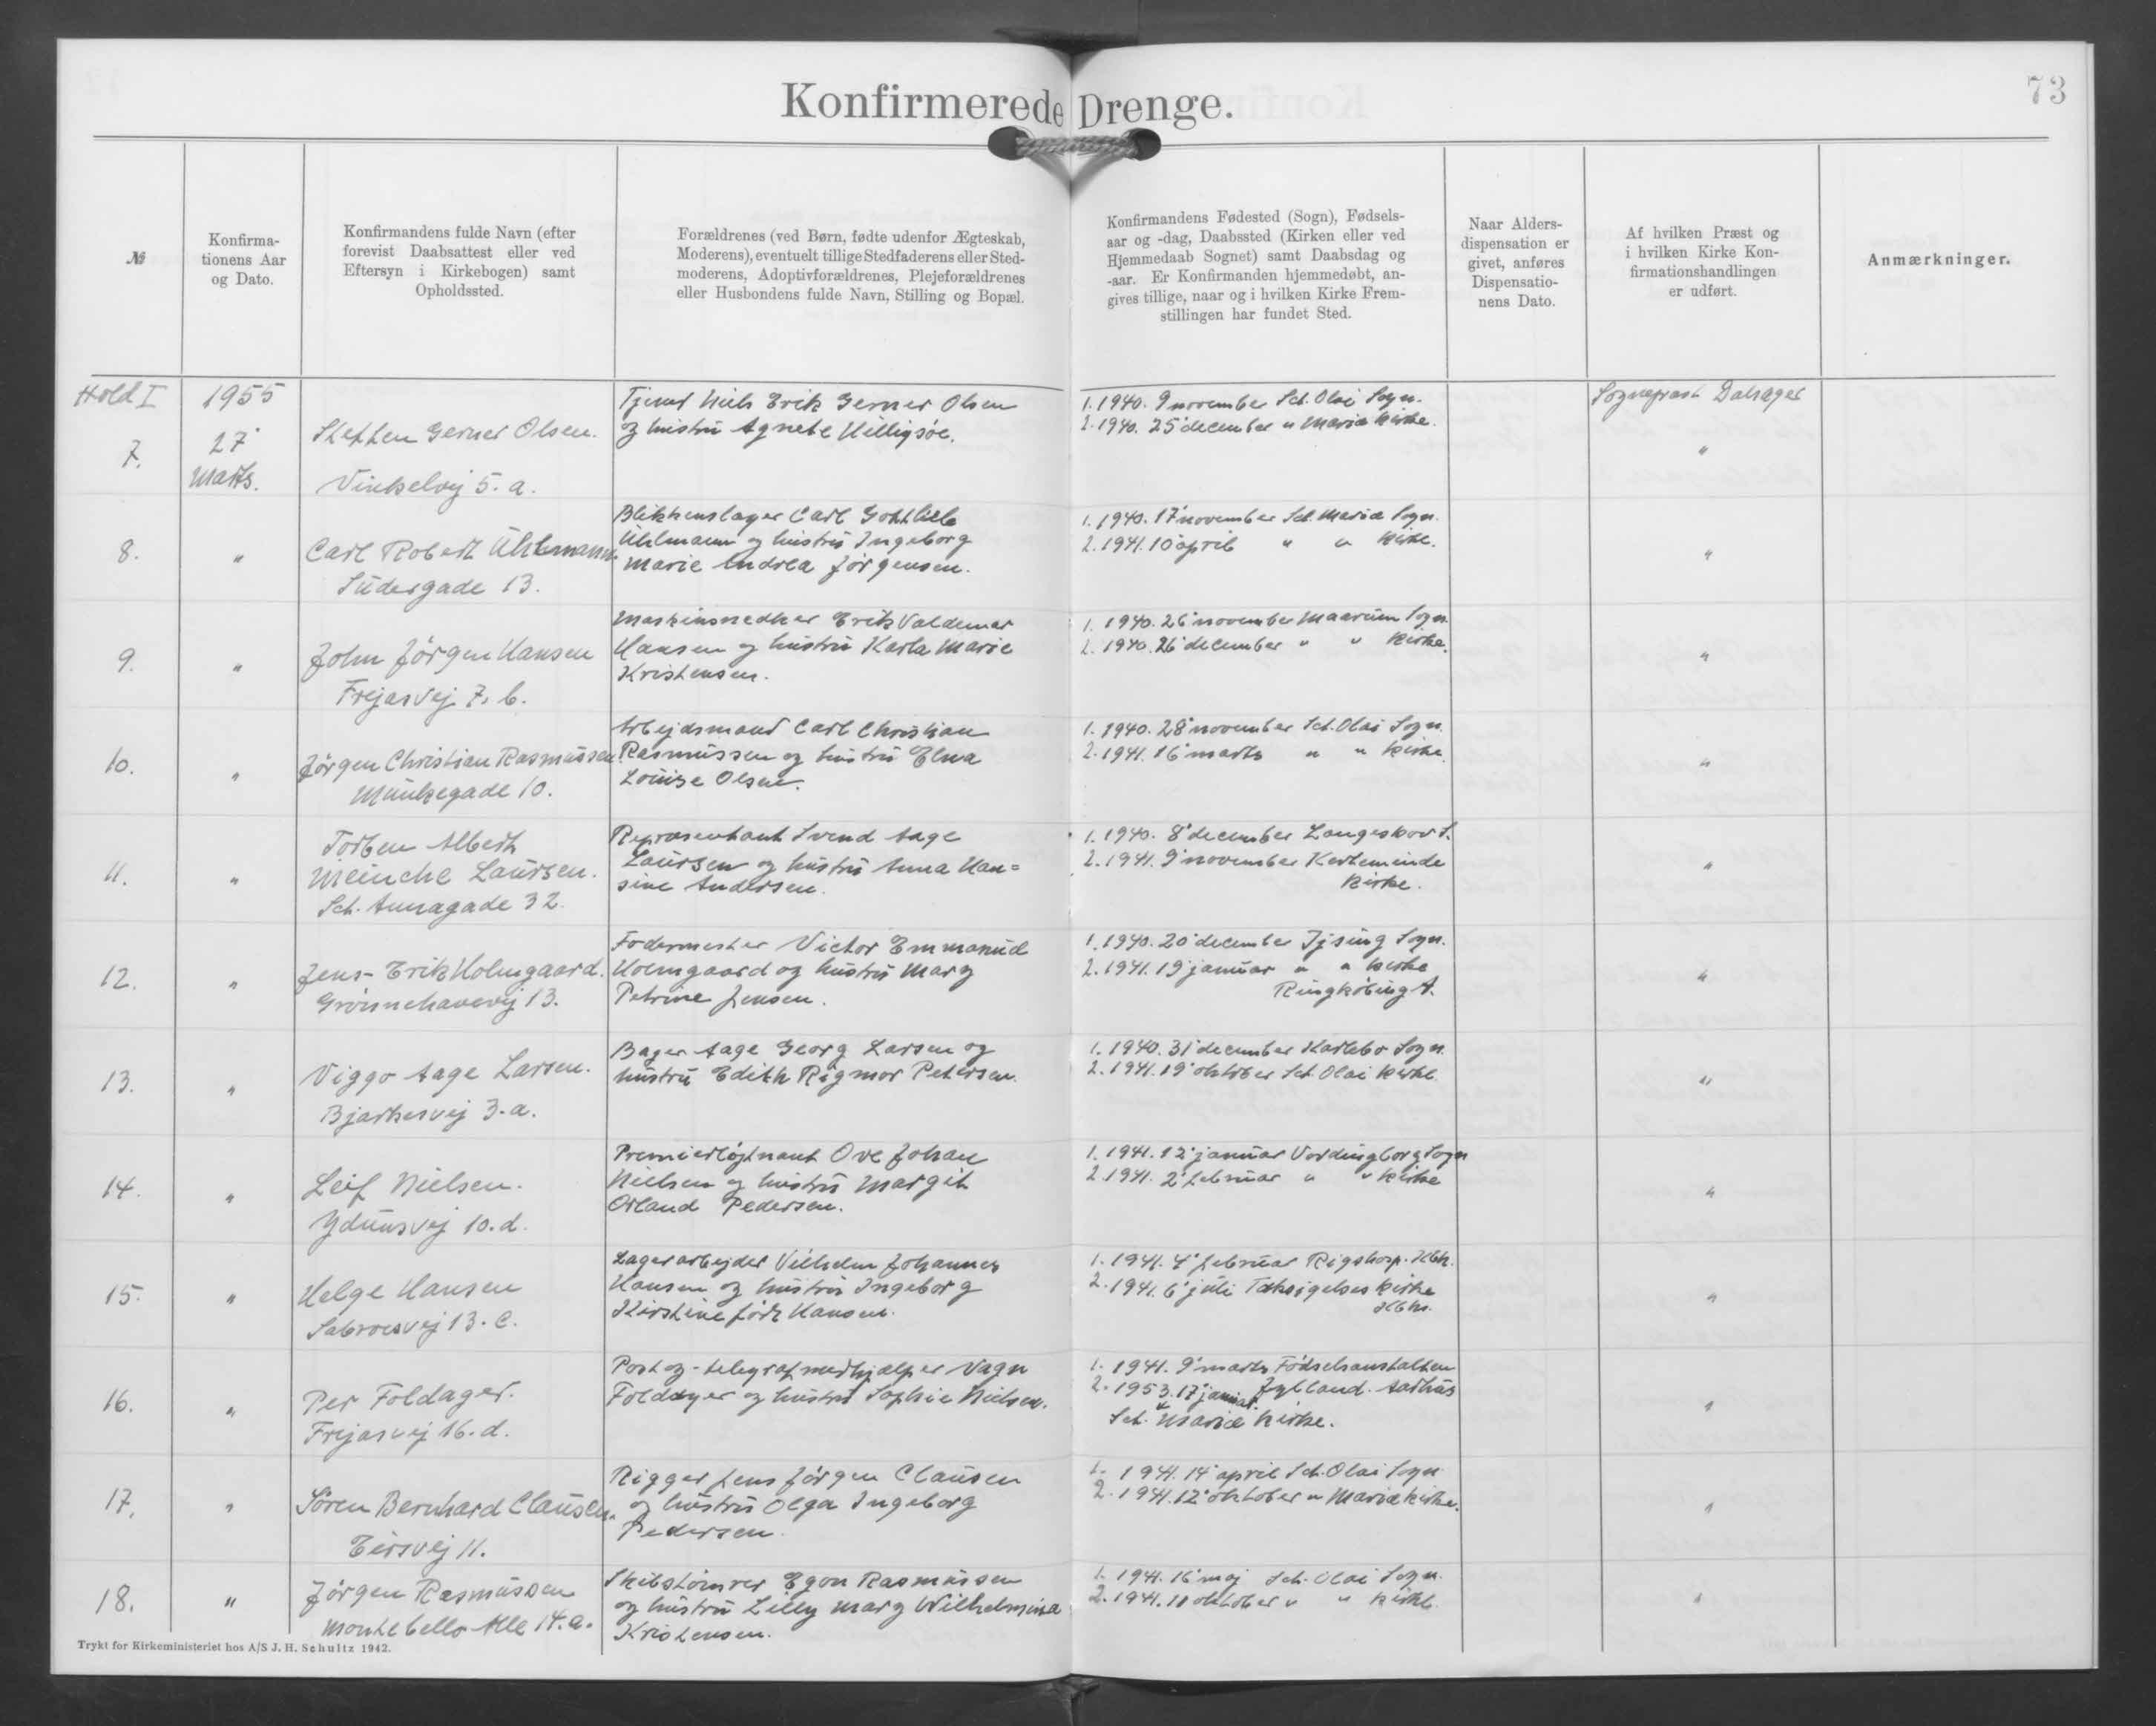 Konfirmerede Drenge.
73
№
Konfirma-
tionens Aar
og Dato.
Konfirmandens fulde Navn (efter
forevist Daabsattest eller ved
Eftersyn i Kirkebogen) samt
Opholdssted.
Forældrenes (ved Børn, fødte udenfor Ægteskab,
Moderens), eventuelt tillige Stedfaderens eller Sted-
moderens, Adoptivforældrenes, Plejeforældrenes
eller Husbondens fulde Navn, Stilling og Bopæl.
Konfirmandens Fødested (Sogn), Fødsels-
aar og -dag, Daabssted (Kirken eller ved
Hjemmedaab Sognet) samt Daabsdag og
-aar. Er Konfirmanden hjemmedøbt, an-
gives tillige, naar og i hvilken Kirke Frem-
stillingen har fundet Sted.
Naar Alders-
dispensation er
givet, anføres
Dispensatio-
nens Dato.
Af hvilken Præst og
i hvilken Kirke Kon-
firmationshandlingen
er udført.
Anmærkninger.
Hold I
1955
Sognepræst Dalsager
7.
27'
Marts.
Steffen Gerner Olsen.
Vinkelvej 5. a.
Tjener Niels Erik Gerner Olsen
og hustru Agnete Hilligsøe.
1. 1940. 9 november Sct. Olai Sogn.
2. 1940. 25' december " Mariæ Kirke.
"
8.
"
Carl Robert Ühlemann
Südergade 13.
Blikkenslager Carl Gottlieb
Ühlmann og hustru Ingeborg
Marie Andrea Jörgensen.
1. 1940. 17' november Sct. Mariæ Sogn.
2. 1941. 10' april " " Kirke.
"
9.
"
John Jörgen Hansen
Frejasvej 7. b.
Maskinsnedker Erik Valdemar
Hansen og hustru Karla Marie
Kristensen.
1. 1940. 26' november Maarum Sogn
2. 1940. 26' december " " Kirke.
"
10.
"
Jörgen Christian Rasmussen
Munkegade 10.
Arbejdsmand Carl Christian
Rasmussen og hustru Elna
Louise Olsen.
1. 1940. 28' november Sct. Olai Sogn.
2. 1941. 16' marts " " Kirke.
"
11.
"
Torben Albert
Meinche Laursen.
Sct. Annagade 32.
Repræsentant Svend Aage
Laursen og hustru Anna Han=
sine Andersen.
1. 1940. 8' december Langeskov S.
2. 1941. 9' november Kerteminde
Kirke.
"
12.
"
Jens-Erik Holmgaard.
Grönnehavevej 13.
Fodermester Victor Emmanuel
Holmgaard og hustru Mary
Petrine Jensen.
1. 1940. 20' december Idsing Sogn.
2. 1941. 19' januar " " Kirke
Ringköbing A.
"
13.
"
Viggo Aage Larsen.
Bjarkesvej 3. a.
Bager Aage Georg Larsen og
hustru Edith Rigmor Petersen.
1. 1940. 31' december Karlebo Sogn.
2. 1941. 19' oktober Sct. Olai Kirke
"
14.
"
Leif Nielsen.
Ydunsvej 10. d.
Premierløjtnant Ove Johan
Nielsen og hustru Margit
Orland Pedersen.
1. 1941. 12' januar Vordingborg Sogn
2. 1941. 2' februar " " Kirke
"
15.
"
Helge Hansen
Sabroesvej 13. C.
Lagerarbejder Vilhelm Johannes
Hansen og hustru Ingeborg
Kirstine født Hansen.
1. 1941. 4' februar Rigshosp. Kbh.
2. 1941. 6' juli Taksigelses Kirke
Kbh.
"
16.
"
Per Foldager.
Frejasvej 16. d.
Post og - telegrafmedhjælper Vagn
Foldager og hustru Sophie Nielsen.
1. 1941. 9' marts Födselsanstalten
2. 1953. 17' januar. Jylland. Aarhus
Sct. Mariæ Kirke.
"
17.
"
Sören Bernhard Clausen.
Eirsvej 11.
Rigger Jens Jörgen Clausen
og hustru Olga Ingeborg
Pedersen.
1. 1941. 14' april Sct. Olai Sogn
2. 1941. 12' oktober " Mariæ Kirke.
"
18.
"
Jörgen Rasmussen
Montebello Alle 14. a.
Skibstömrer Egon Rasmussen
og hustru Lilly Mary Wilhelmina
Kristensen.
1. 1941. 16' maj Sct. Olai Sogn.
2. 1941. 11 oktober " " Kirke.
"
Trykt for Kirkeministeriet hos A/S J. H. Schultz 1942.